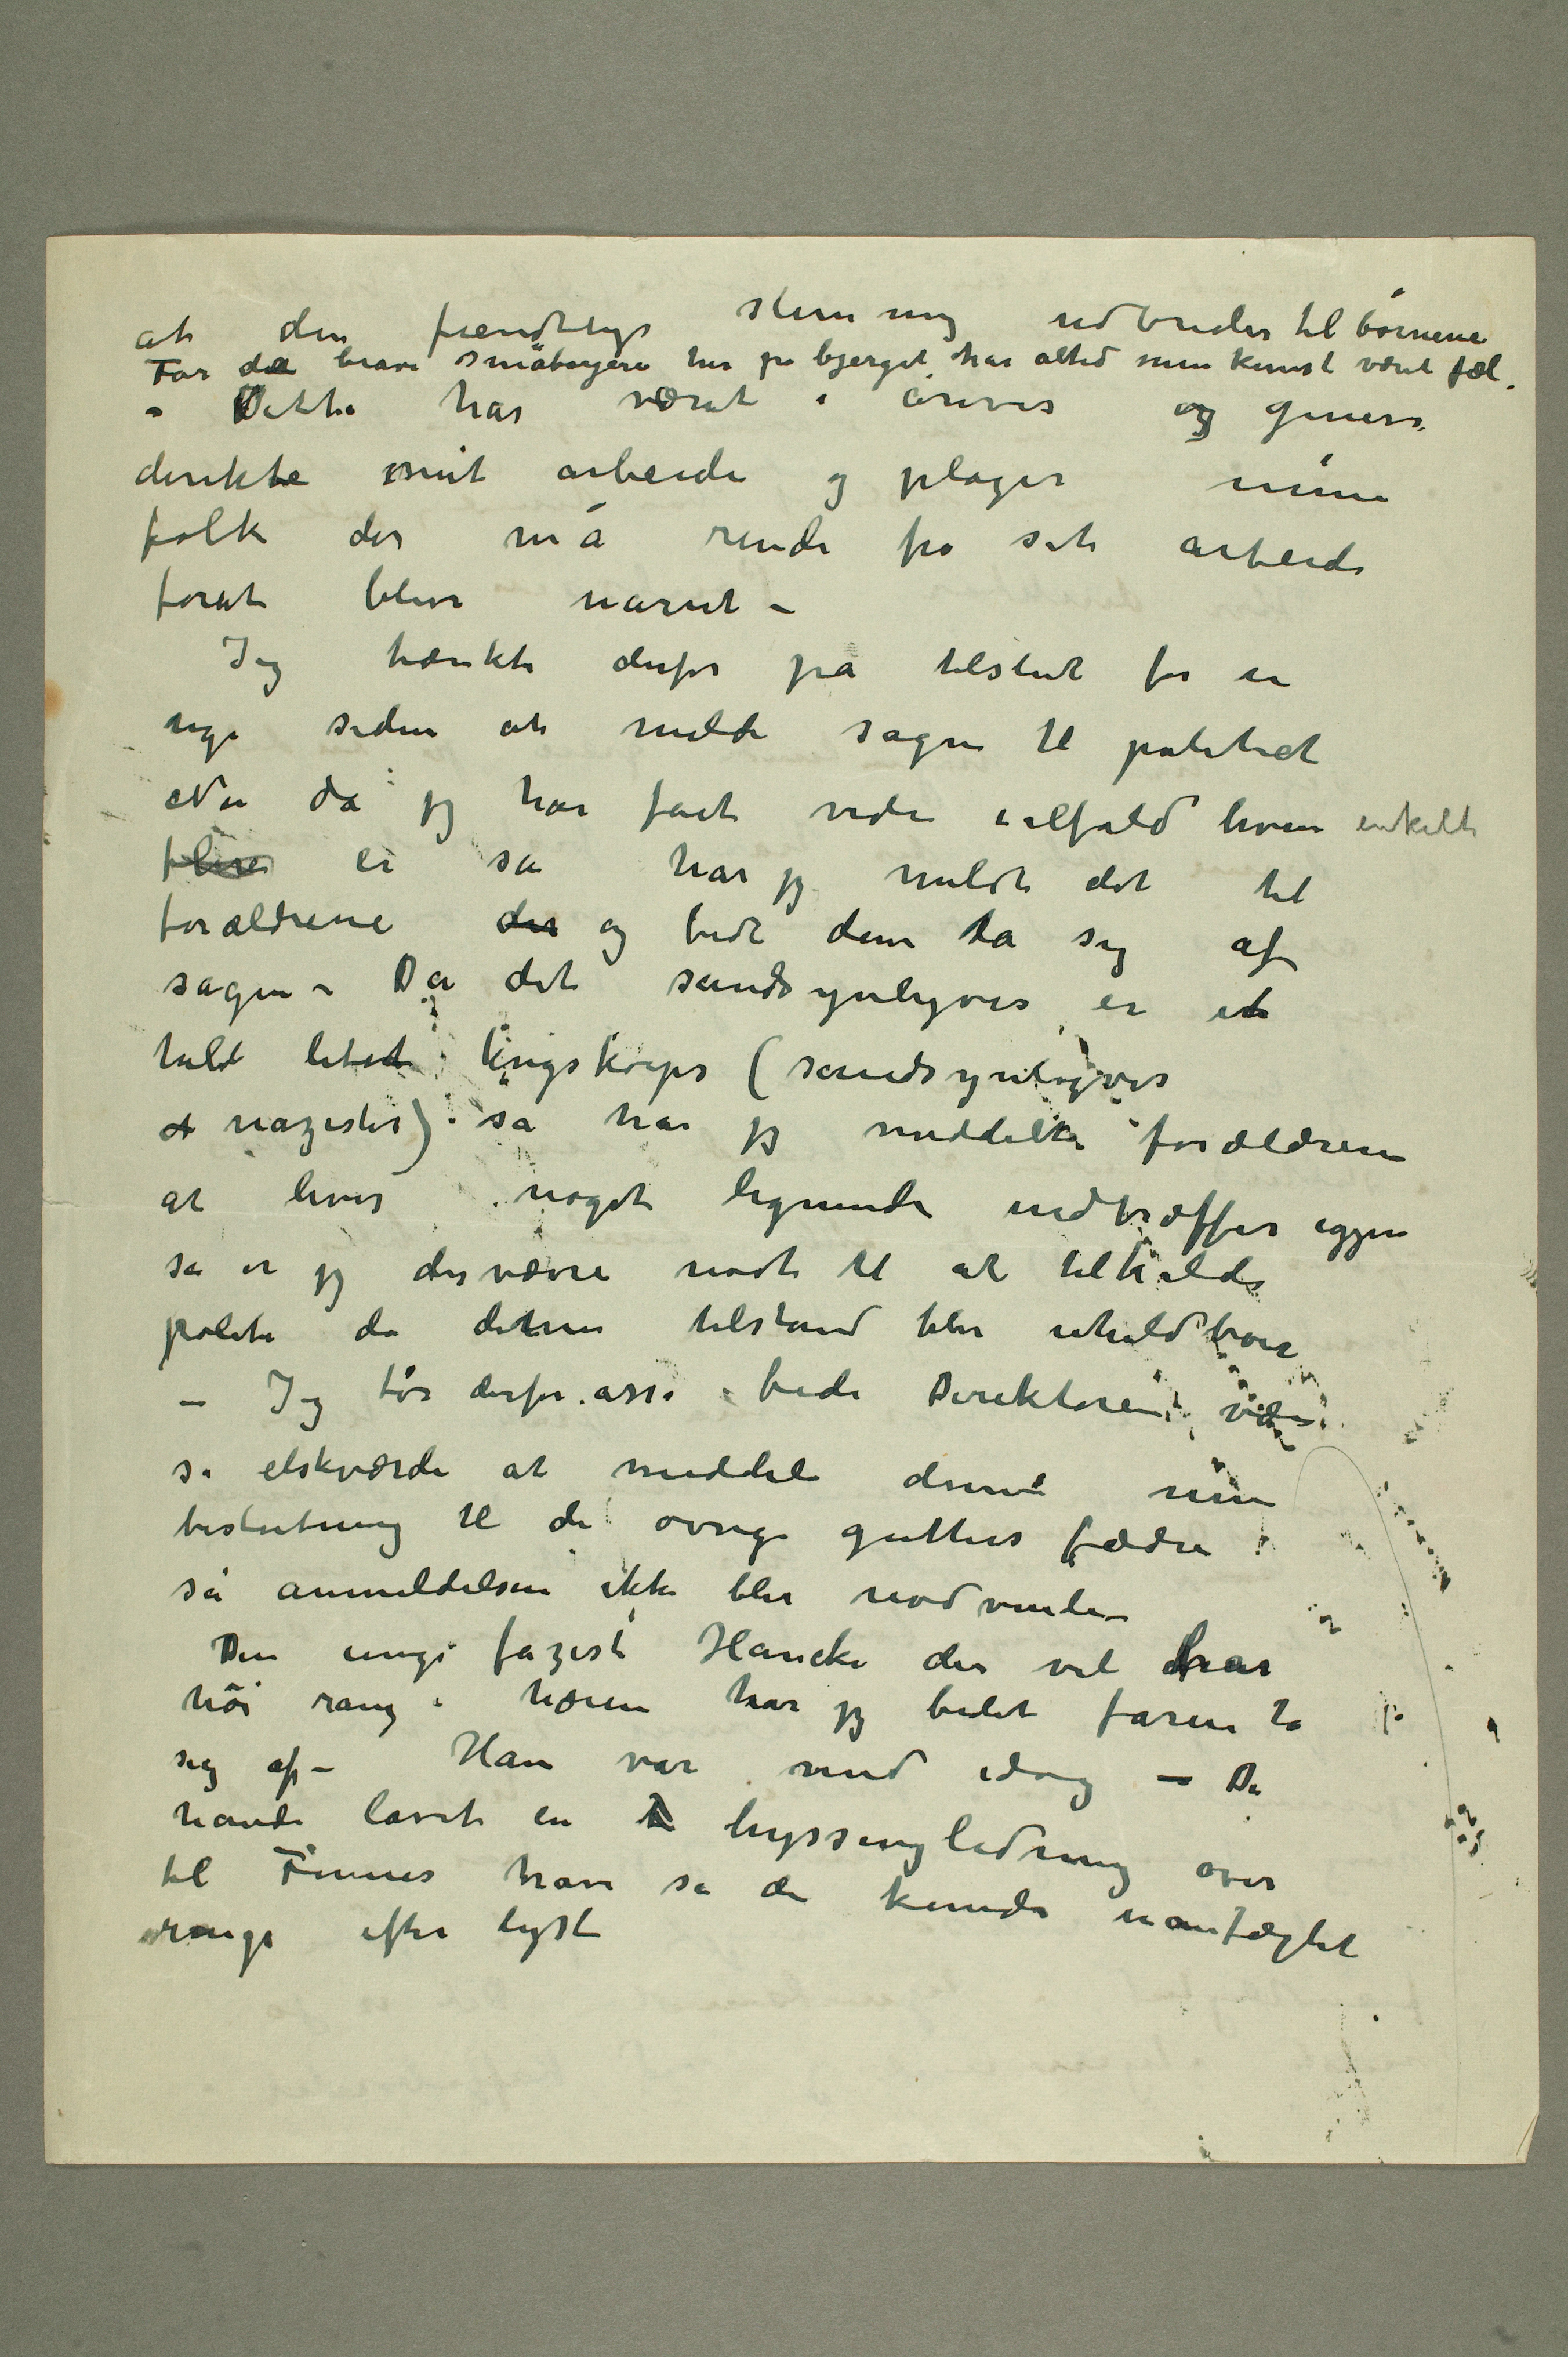 at den fiendtlige stemning udbreder til børnene
For de brave småborgere her på bjerget har altid min kunst vært fæl.
– Dette har været i årevis og generer
direkte mit arbeide og plager mine
folk der må rende fra sit arbeide
forat blive narret –
Jeg tænkte derfor på tilslut for en
uge siden at melde sagen til politiet
Nu da jeg har fået vide ialfald hvem enkelte
flere er så har jeg meldt det til
forældrene der og bedt dem ta sig af
sagen – Da det sandsynligvis er et
helt litet krigskorps (sandsynligvis
nazister) så har jeg meddelt forældrene
at hvis noget lignende indtræffer igjen
så er jeg desværre nødt til at tilkalde
politi da denne tilstand blir uholdbar
– Jeg tør derfor også bede Direktøren være
så elskværdi at meddele denne min
beslutning til de øvrige gutters fædre
så anmeldelsen ikke blir nødvendi–
Den unge fazist Hancke der vel har
høi rang i hæren har jeg bedet faren ta
sig af – Han var med idag – De
havde lavet en hyssingledning over
til Finnes have så de kunde uantægtet
ringe efter lyst